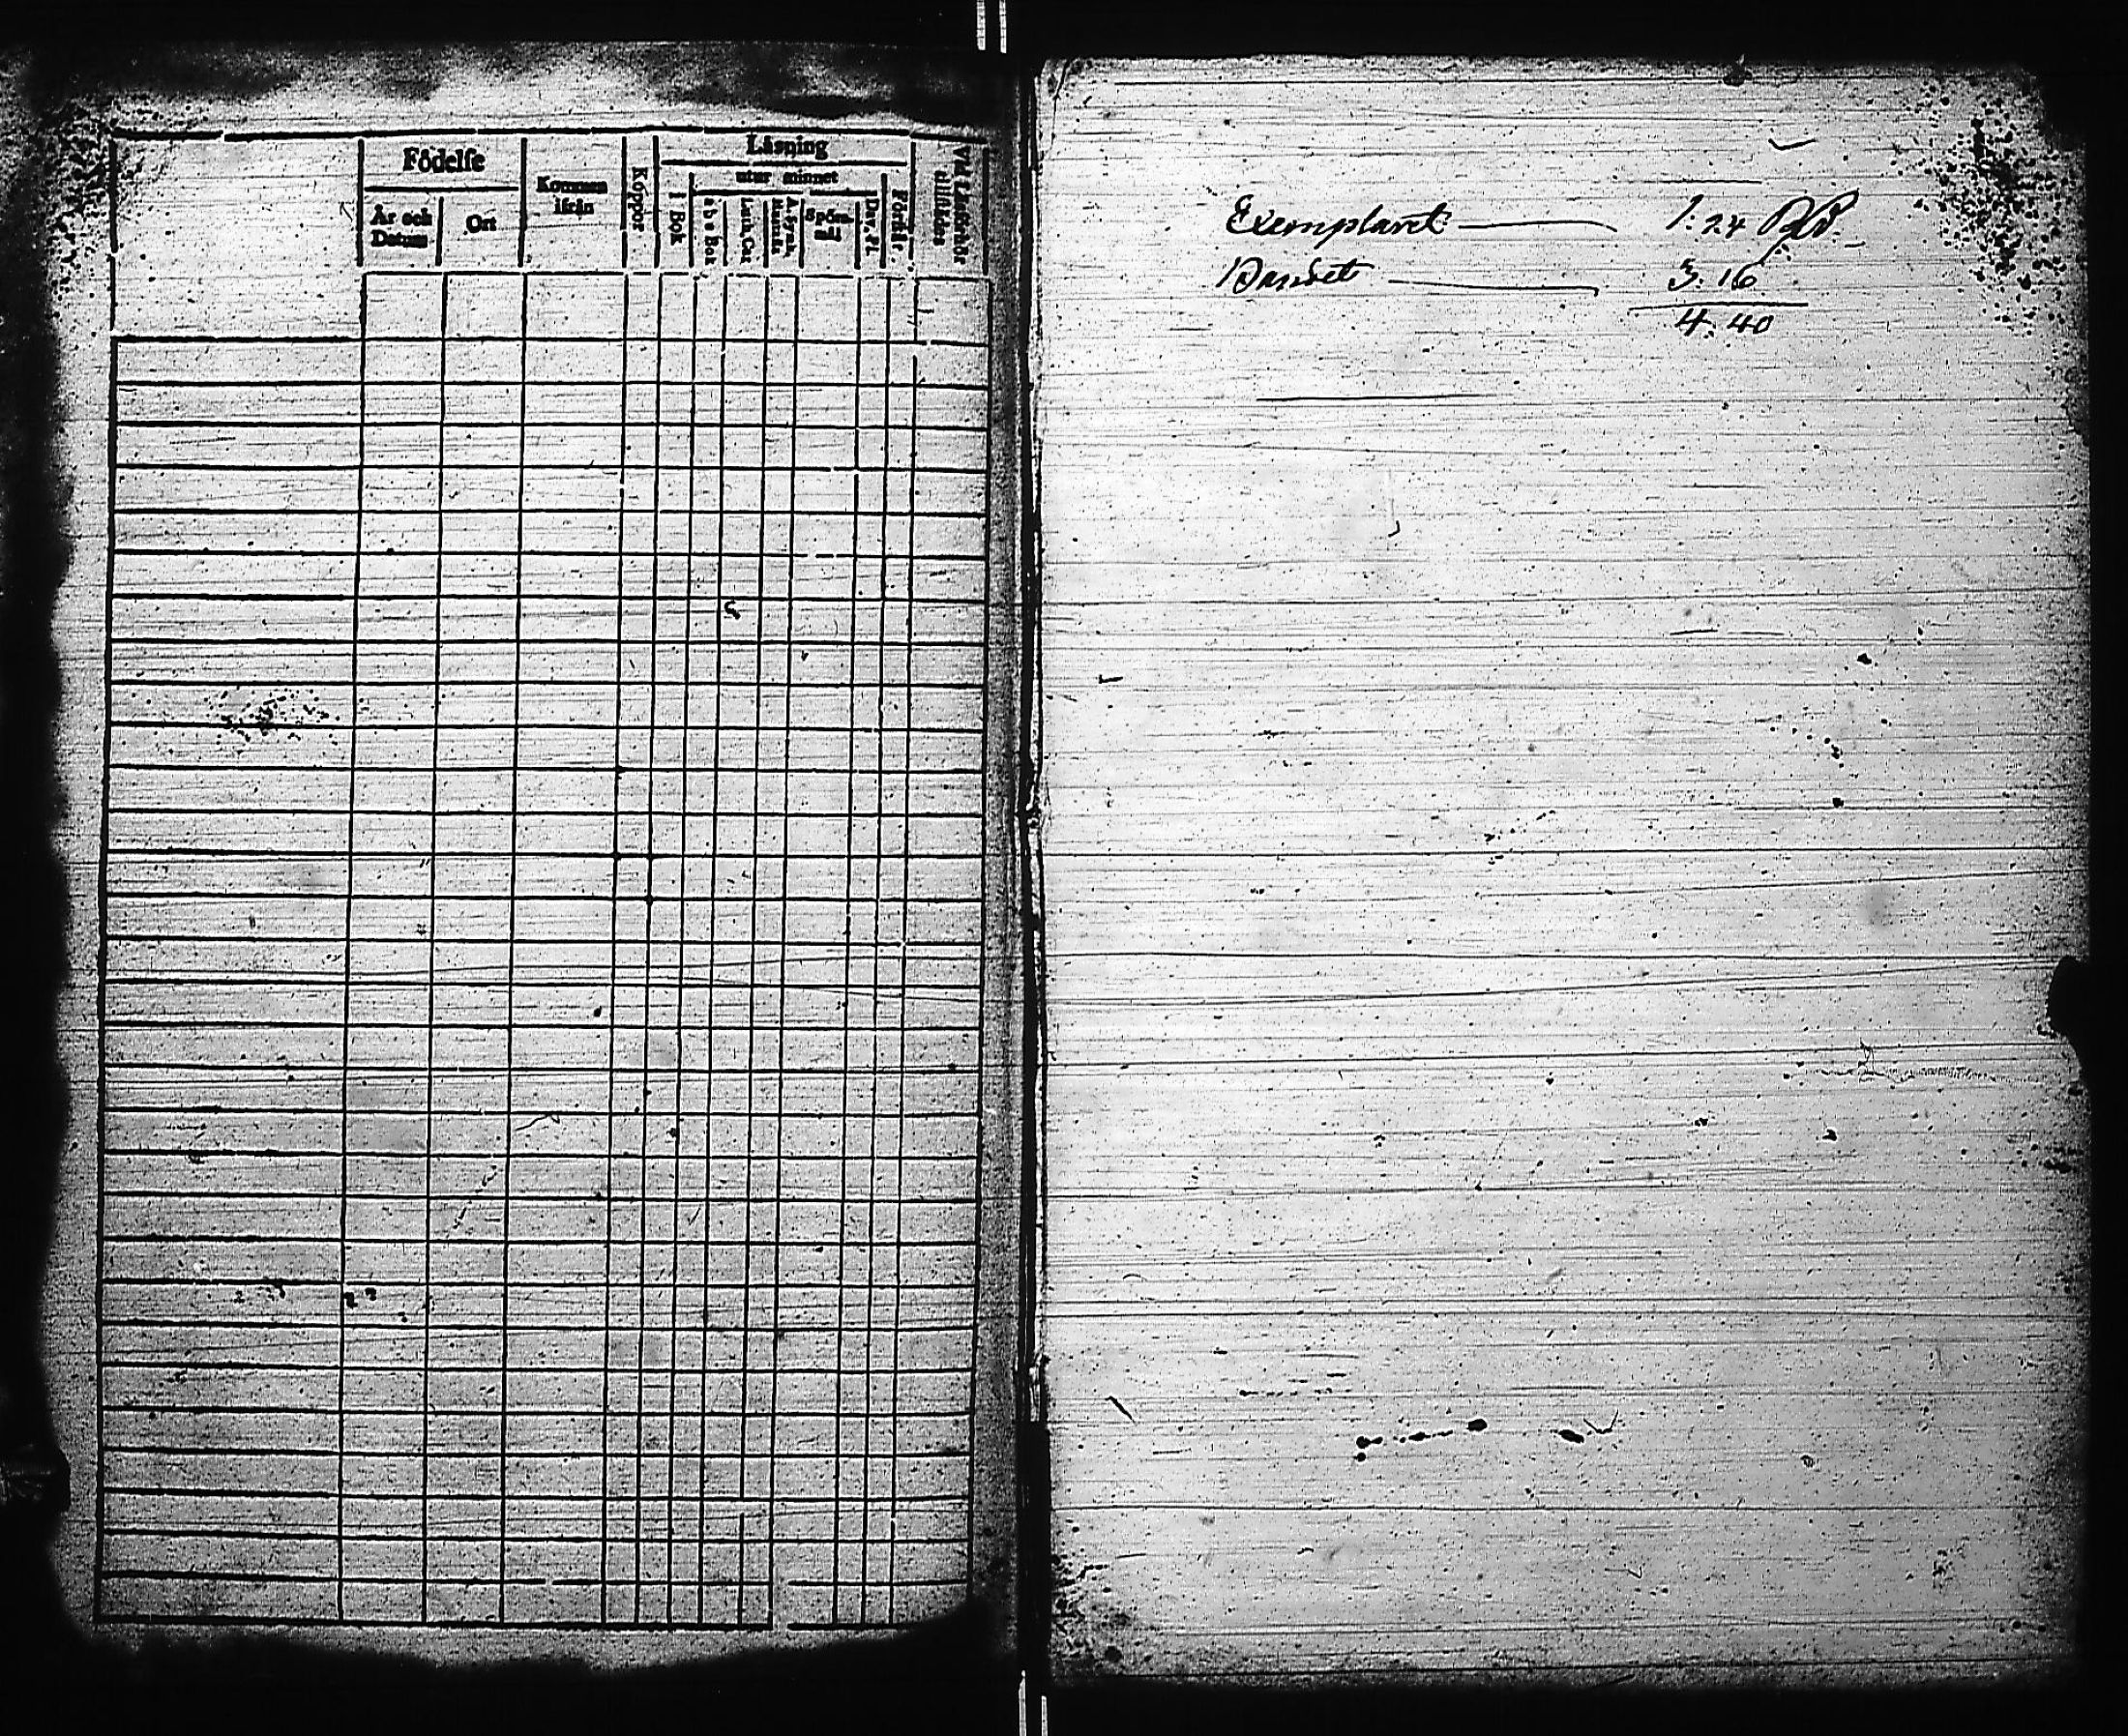 Födelse
Läsning
utur minnet
Kommen
ifrån
Koppor
År och
Datum
Ort
I Bok
a b c Bok
Luth. Cat.
Spörs-
mål
Dav. Ps.
Förstår.
Vid Läseförhör
tillstädes
Exemplaret 1. 24
Bandet 3. 16
4. 40